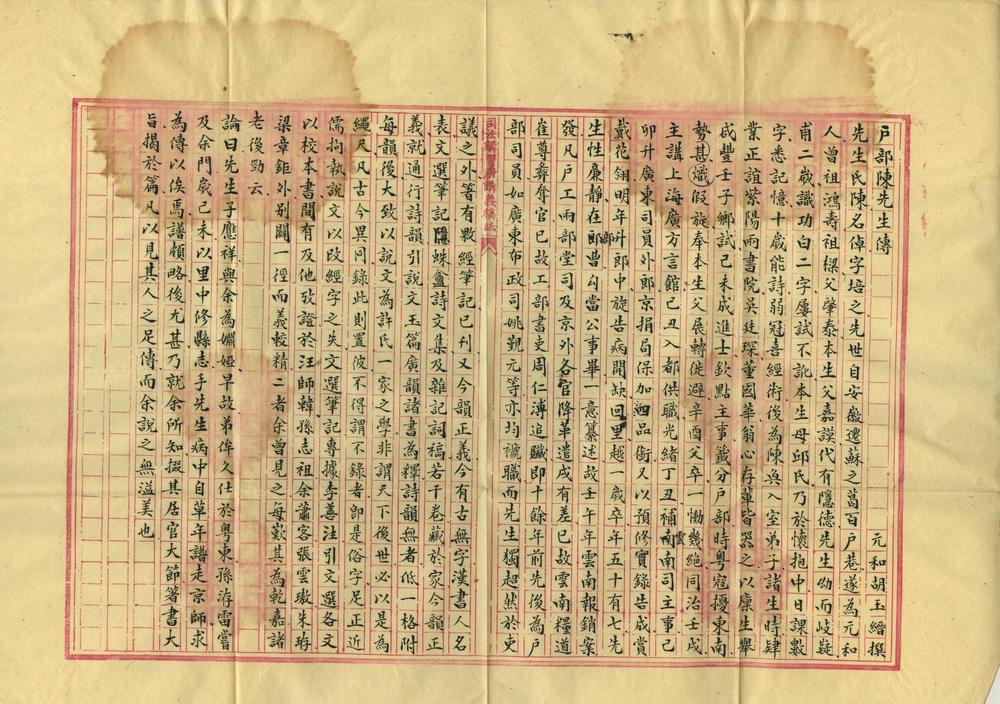 戶部陳先生傳
元和胡玉縉撰
先生氏陳名倬字培之先世自安徽遷蘇之葛百戶巷遂為元和
人曾祖鴻壽祖樑父肇泰本生父嘉謨代有隱德先生幼而岐嶷
甫二歲識功白二字屢試不訛本生母邱氏乃於懷抱中日課數
字悉記憶十歲能詩弱冠喜經術後為陳奐入室弟子諸生時肄
業正誼紫陽兩書院吳廷琛董國華翁心存輩皆器之以廩生舉
咸豐壬子鄉試己未成進士欽點主事籤分戶部時粵寇擾東南
勢甚熾假旋奉本生父展轉徙避辛酉父卒一慟幾絕同治壬戌
主講上海廣方言館乙丑入都供職光緒丁丑補雲南司主事己
卯升廣東司員外郎京捐局保加四品銜又以預修實錄告成賞
戴花翎明年升郎中旋告病開缺回里越一歲卒年五十有七先
生性廉靜在部郎曹勾當公事畢一意纂述故壬午年雲南報銷案
發凡戶工兩部堂司及京外各官降革遣戍有差已故雲南糧道
崔尊彝奪官已故工部書吏周仁溥追贓即十餘年前先後為戶
部司員如廣東布政司姚覲元等亦均褫職而先生獨超然於吏
司法講習所講義稿紙
議之外箸有斅經筆記已刊又今韻正義今有古無字漢書人名
表文選筆記隱蛛盦詩文集及雜記詞稿若干卷藏於家今韻正
義就通行詩韻引說文玉篇廣韻諸書為釋詩韻無者低一格附
每韻後大致以說文為許氏一家之學非謂天下後世必以是為
繩尺凡古今異同錄此則置彼不得謂不錄者即是俗字足正近
儒拘執說文以改經字之失文選筆記專據李善注引文選各文
以校本書間有及他攷證於汪師韓孫志祖余蕭客張雲璈朱珔
梁章鉅外別闢一徑而義較精二者余曾見之每歎其為乾嘉諸
老後勁云
論曰先生子應祥與余為嫺婭早故弟侔久仕於粵東孫洊雷嘗
及余門歲己未以里中修縣志手先生病中自草年譜走京師求
為傳以俟焉譜頗略後尤甚乃就余所知掇其居官大節箸書大
旨揭於篇凡以見其人之足傳而余說之無溢美也